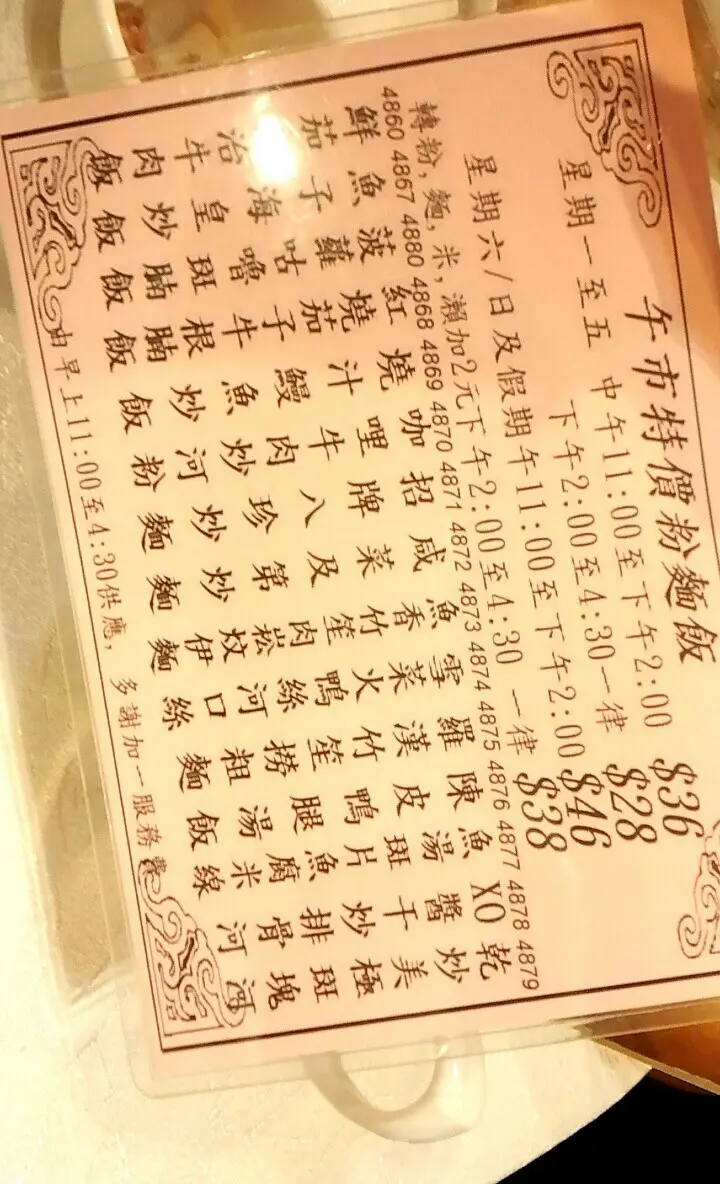 午市特價粉麵飯
星期一至五 中午11:00至下午2:00 $36
下午2:00至4:30一律 $28
星期六/日及假期 午11:00至下午2:00 $46
下午2:00至4:30 一律 $38
轉粉,麵,米,瀨加2元
4860 4867 4880 4868 4869 4870 4871 4872 4873 4874 4875 4876 4877 4878 4879
鮮茄治牛肉飯
魚子海皇炒飯
菠蘿咕嚕斑腩飯
紅燒茄子牛根腩飯
燒汁鰻魚炒飯
咖哩牛肉炒河粉
招牌八珍炒麵
咸菜及第炒麵
魚香竹笙肉崧炆伊麵
雪菜火鴨絲河口絲
羅漢竹笙撈粗麵
陳皮鴨腿湯飯
魚湯斑片魚腐米線
XO醬干炒排骨河
乾炒美極斑塊河
由早上11:00至4:30供應, 多謝加一服務費